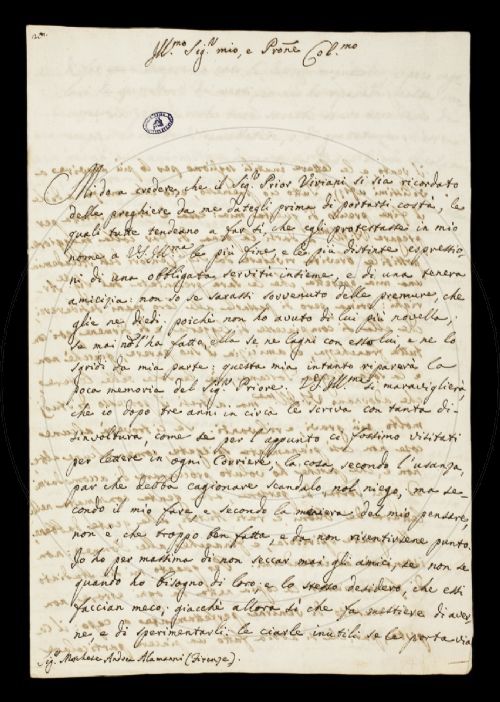 Ill.mo Sig.r mio, e Pron̄e Col.mo
Mi do a credere, che il Sig.r Prior Viviani si sia ricordato
delle preghiere da me fattegli prima di partarsi costà; le
quali tutte tendeano a far sì, che egli protestasse in mio
nome a VS Ill.ma le più fine, e le più distinte espressio-
ni di una obbligata servitù insieme, e di una tenera
amicizia: non so se sarassi sovvenuto delle premure, che
glie ne diedi, poichè non ho avuto di lui più novella;
se mai nol' ha fatto, ella se ne lagni con esso lui, e ne lo
sgridi da mia parte: questa mia intanto riparerà la
poca memoria del Sig.r Priore. VS Ill.ma si maraviglierà,
che io dopo tre anni in circa le scriva con tanta di-
sinvoltura, come se per l'appunto ci fossimo visitati
per lettere in ogni Corriere; la cosa, secondo l'usanza,
par che debba cagionare scandalo, nol niego, ma se-
condo il mio fare, e secondo la maniera del mio pensare,
non è che troppo ben fatta, e da non risentirsene punto.
Io ho per massima di non seccar mai gli amici, se non se
quando ho bisogno di loro: e lo stesso desidero, che essi
faccian meco; giacchè allora sì che fa mestiere di aver-
ne, e di sperimentarli: le ciarle inutili se le porta via
Sig.r Marchese Andrea Alamanni (Firenze).